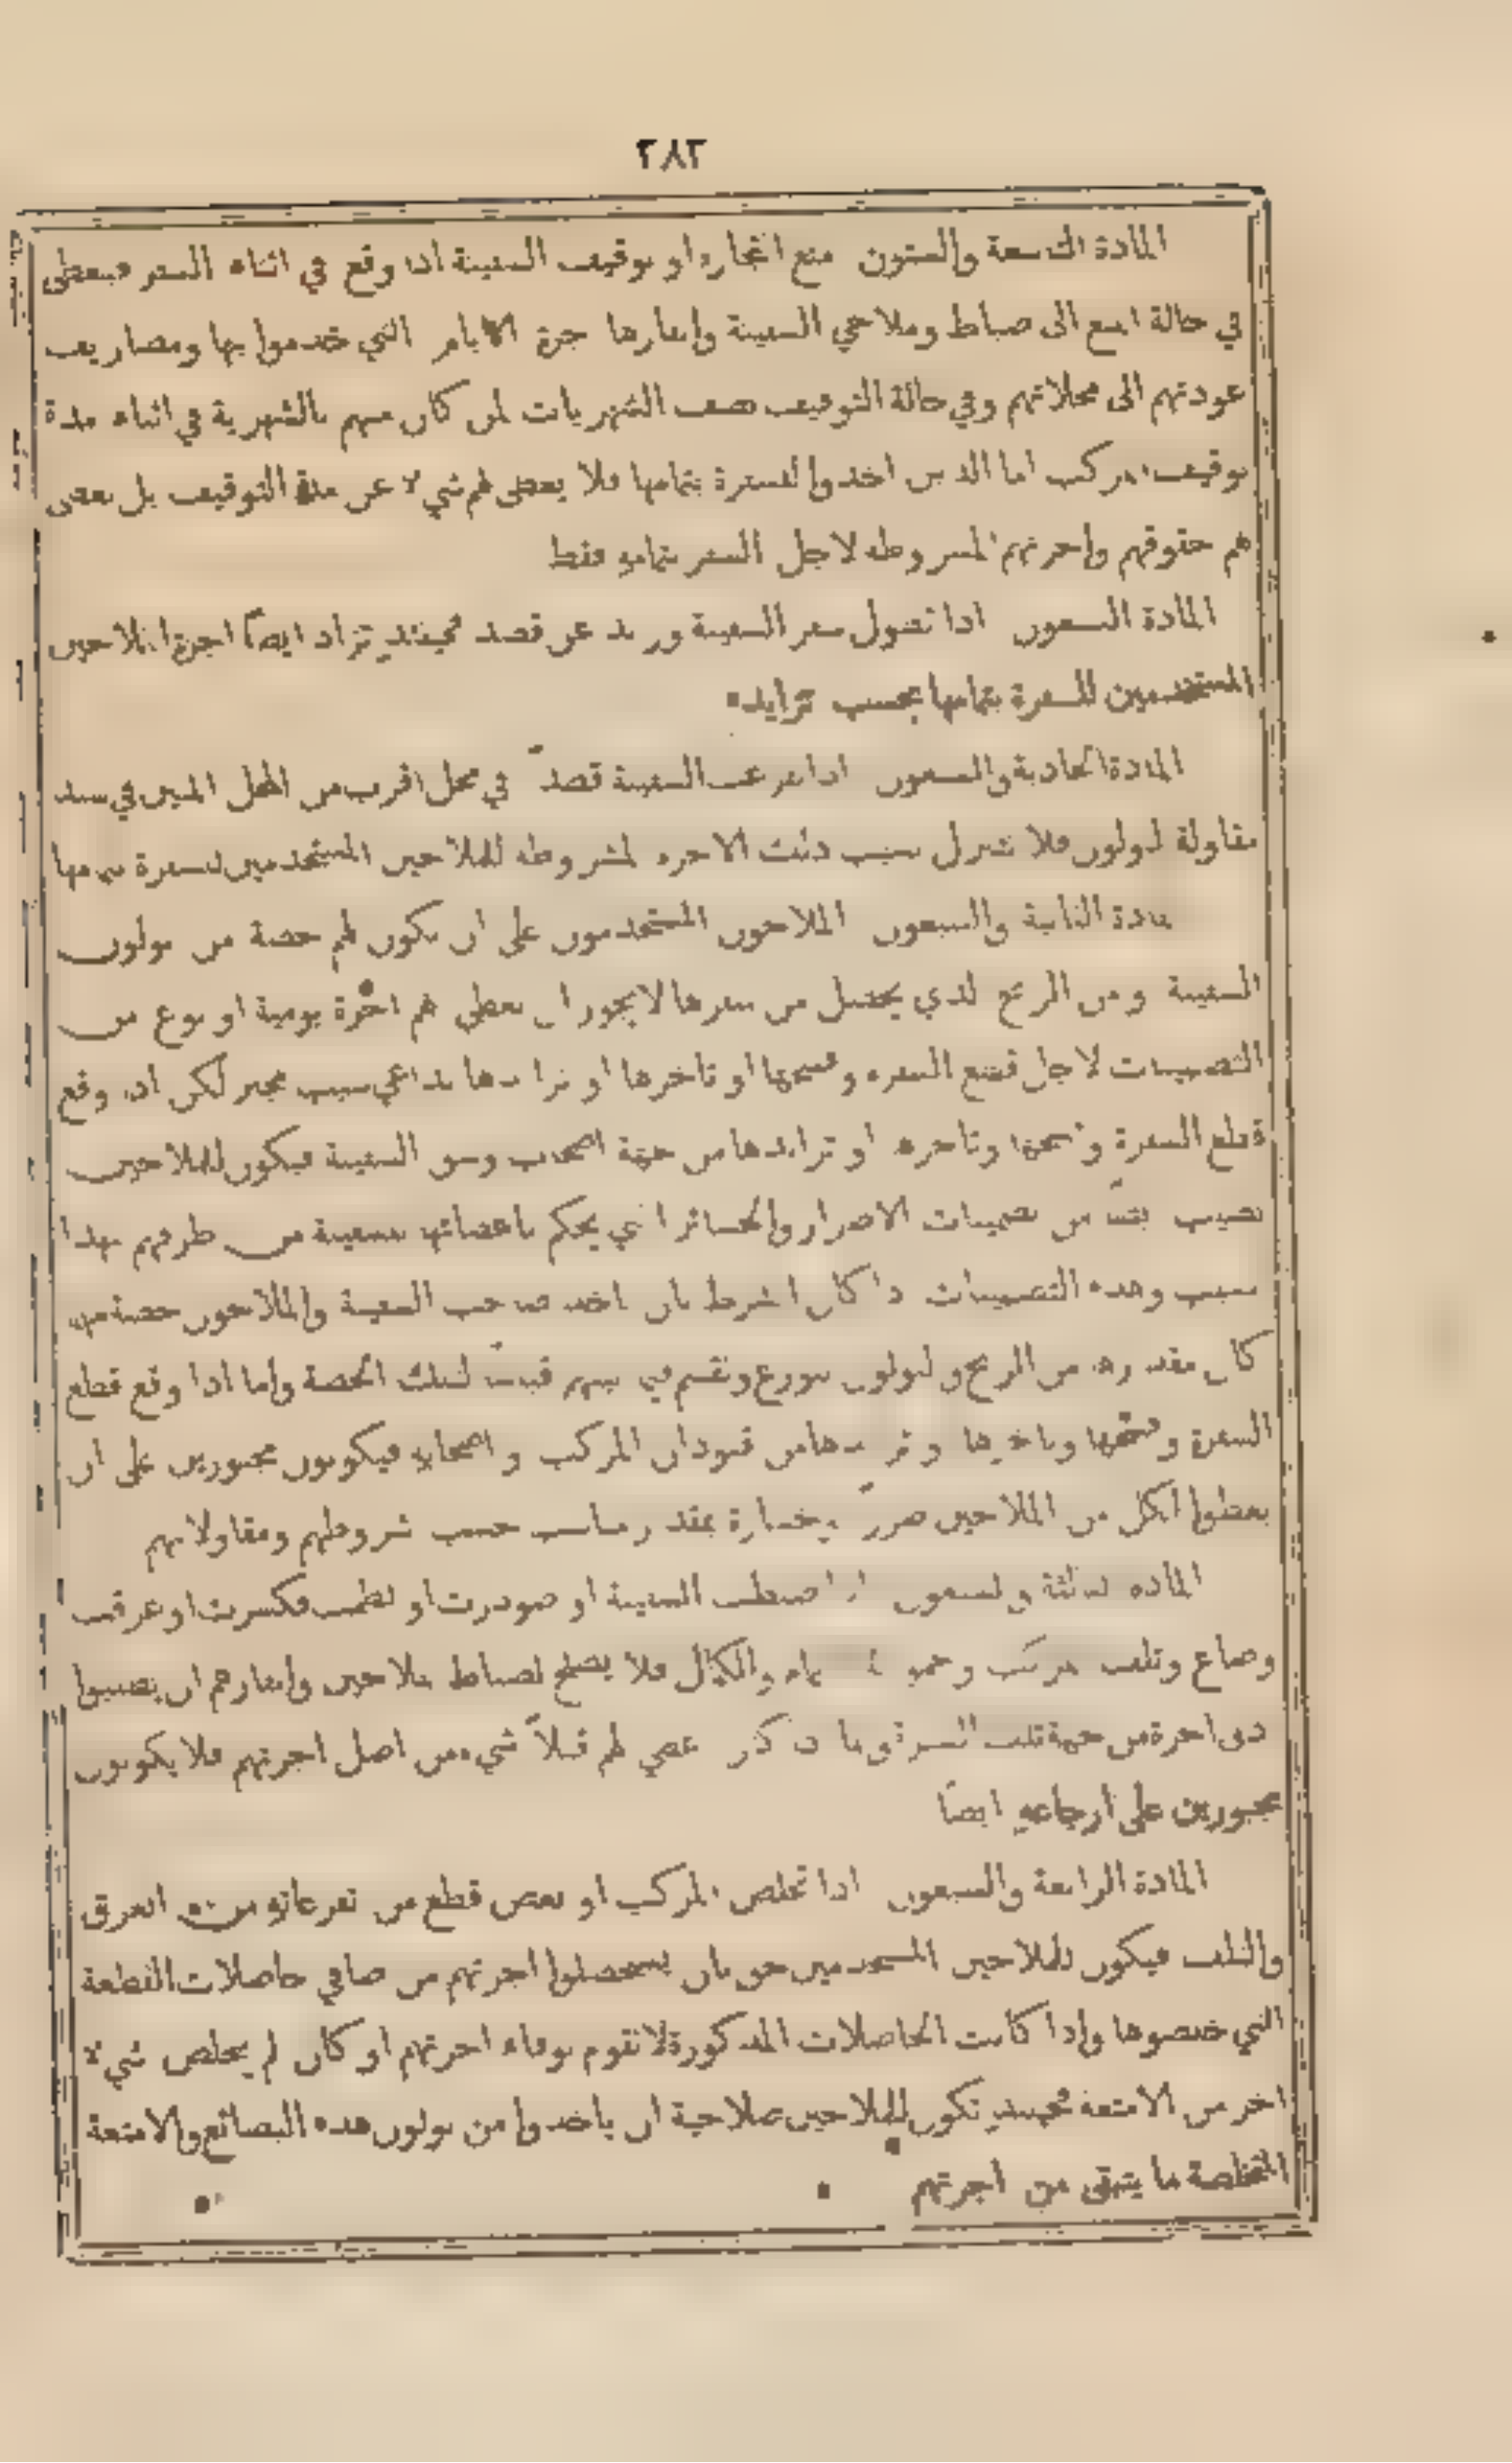 ٢٨٣
المادة التاسعة والستون منع التجارة او توقيف السفينة اذا وقع في اثناء السفر فيعطى
في حالة المنع الى ضباط وملاحي السفينة وانفارها اجرة الايام التي خدموا بها ومصاريف
عودتهم الى محلاتهم وفي حالة التوقيف نصف الشهريات لمن كان منهم بالشهرية في اثناء مدة
توقيف المركب اما الذين اخذوا للسفرة بتمامها فلا يعطى لهم شيء عن مدة التوقيف بل يعطى
لهم حقوقهم واجرتهم المشروطة لاجل السفر بتمامهِ فقط
المادة السبعون اذا تطول سفر السفينة وزيد عن قصد فحينئذٍ تزاد ايضاً اجرة الملاحين
المستخدمين للسفرة بتمامها بحسب تزايده
المادة الحادية والسبعون اذا تفرغت السفينة قصداً في محل اقرب من المحل المبين في سند
مقاولة النولون فلا تنزل بسبب ذلك الاجرة المشروطة للملاحين المستخدمين للسفرة بتمامها
المادة الثانية والسبعون الملاحون المستخدمون على ان يكون لهم حصة من نولون
السفينة ومن الربح الذي يحصل من سفرها لا يجوز ان يعطى لهم اجرة يومية او نوع من
التضمينات لاجل قطع السفرة وفسخها او تاخرها او تزايدها بداعي سبب مجبر لكن اذا وقع
قطع السفرة وفسخها وتاخرها او تزايدها من جهة اصحاب وسق السفينة فيكون للملاحين
نصيب ايضاً من تضمينات الاضرار والخسائر التي يحكم باعطائها للسفينة من طرفهم بهذا
السبب وهذه التضمينات اذا كان الشرط بان ياخذ صاحب السفينة والملاحون حصة مهما
كان مقدارها من الربح والنولون توزع وتقسم فيما بينهم قياساً لتلك الحصة واما اذا وقع قطع
السفرة وفسخها وتاخيرها وتزايدها من قبودان المركب واصحابهِ فيكونون مجبورين على ان
يعطوا لكل من الملاحين ضرراً وخسارة بمقدار مناسب حسب شروطهم ومقاولاتهم
المادة الثالثة والسبعون اذا ضبطت السفينة او صودرت او لطمت فكسرت او غرقت
وضاع وتلف المركب وحمولته بالتمام والكمال فلا يصلح لضباط ملاحين وانفارهم ان يطلبوا
ادنى اجرة من جهة تلك السفرة وما اذا كان اعطي لهم قبلاً شيء من اصل اجرتهم فلا يكونون
مجبورين على ارجاعهِ ايضاً
المادة الرابعة والسبعون اذا تخلص المركب او بعض قطع من تفرعاتهِ من الغرق
والتلف فيكون للملاحين المستخدمين حق بان يستحصلوا اجرتهم من صافي حاصلات القطعة
التي خلصوها واذا كانت الحاصلات المذكورة لا تقوم بوفاء اجرتهم او كان لم يخلص شيء
اخر من الامتعة فحينئذٍ تكون للملاحين صلاحية ان ياخذوا من نولون هذه البضائع والامتعة
المخلصة ما يتبقى من اجرتهم